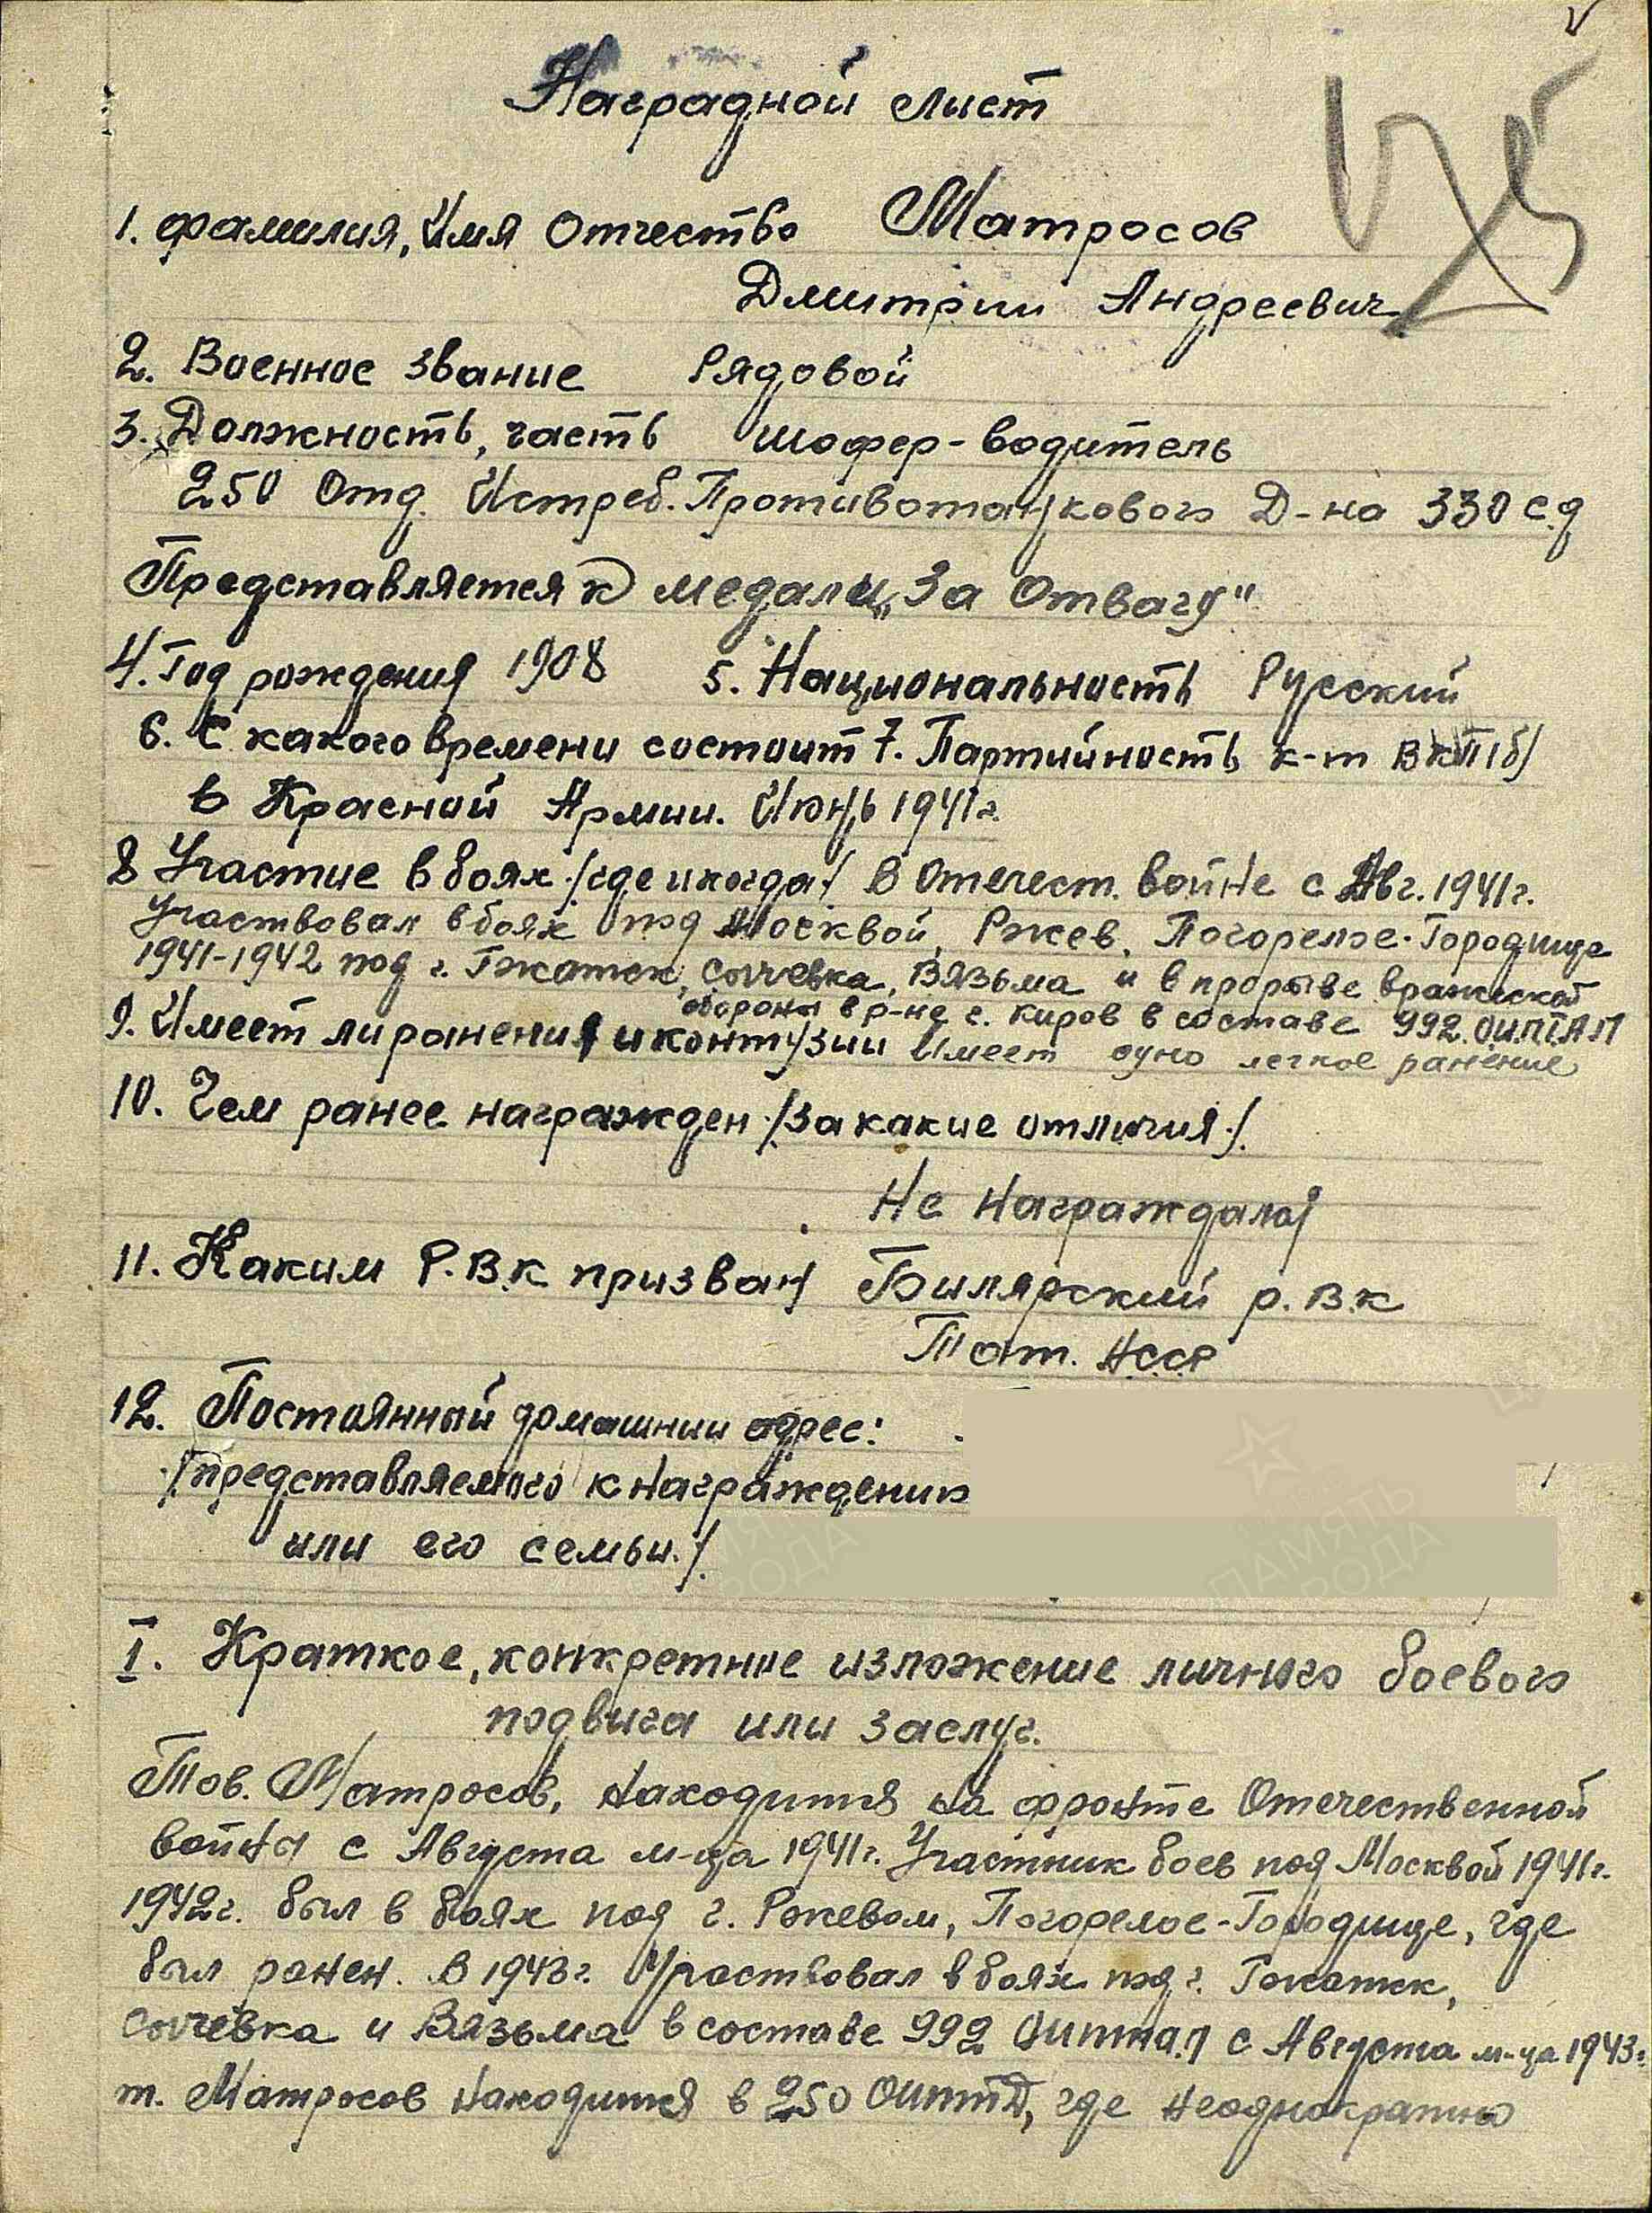 Наградной лист
1. Фамилия, Имя Отчество Матросов
Дмитрий Андреевич
2. Военное звание Рядовой
3. Должность, часть шофер-водитель
250 Отд. Истреб. Противотанкового Д-на 330 с.д
Представляется к медали „За Отвагу"
4. Год рождения 1908 5. Национальность Русский
6. С какого времени состоит 7. Партийность к-т ВКП(б)
в Красной Армии. Июнь 1941г.
8 Участие в боях /где и когда/ в Отечест. войне с Авг. 1941г.
участвовал в боях под Москвой, Ржев, Погорелое-Городище
1941-1942 под г. Гжатск, Сычевка, Вязьма и в прорыве вражеской
обороны в р-не г. Киров в составе 992 ОИПТАП
9. Имеет ли ранения и контузии Имеет одно легкое ранение
10. Чем ранее награжден /за какие отличия/.
Не награждался
11. Каким Р.В.К призван Билярский р.В.К
Тат. АССР
12. Постоянный домашнии адрес:
/представляемого к награждению
или его семьи./
I. Краткое, конкретное изложение личного боевого
подвига или заслуг.
Тов. Матросов, находится на фронте Отечественной
войны с Августа м-ца 1941г. Участник боев под Москвой 1941г.
1942г. был в боях под г. Ржевом, Погорелое-Городище, где
был ранен. В 1943г. Участвовал в боях под г. Гжатск,
Сычевка и Вязьма в составе 992 ОИПТАП с Августа м-ца 1943г.
т. Матросов находится в 250 ОИПТД, где неоднократно
ПАМЯТЬ
НАРОДА